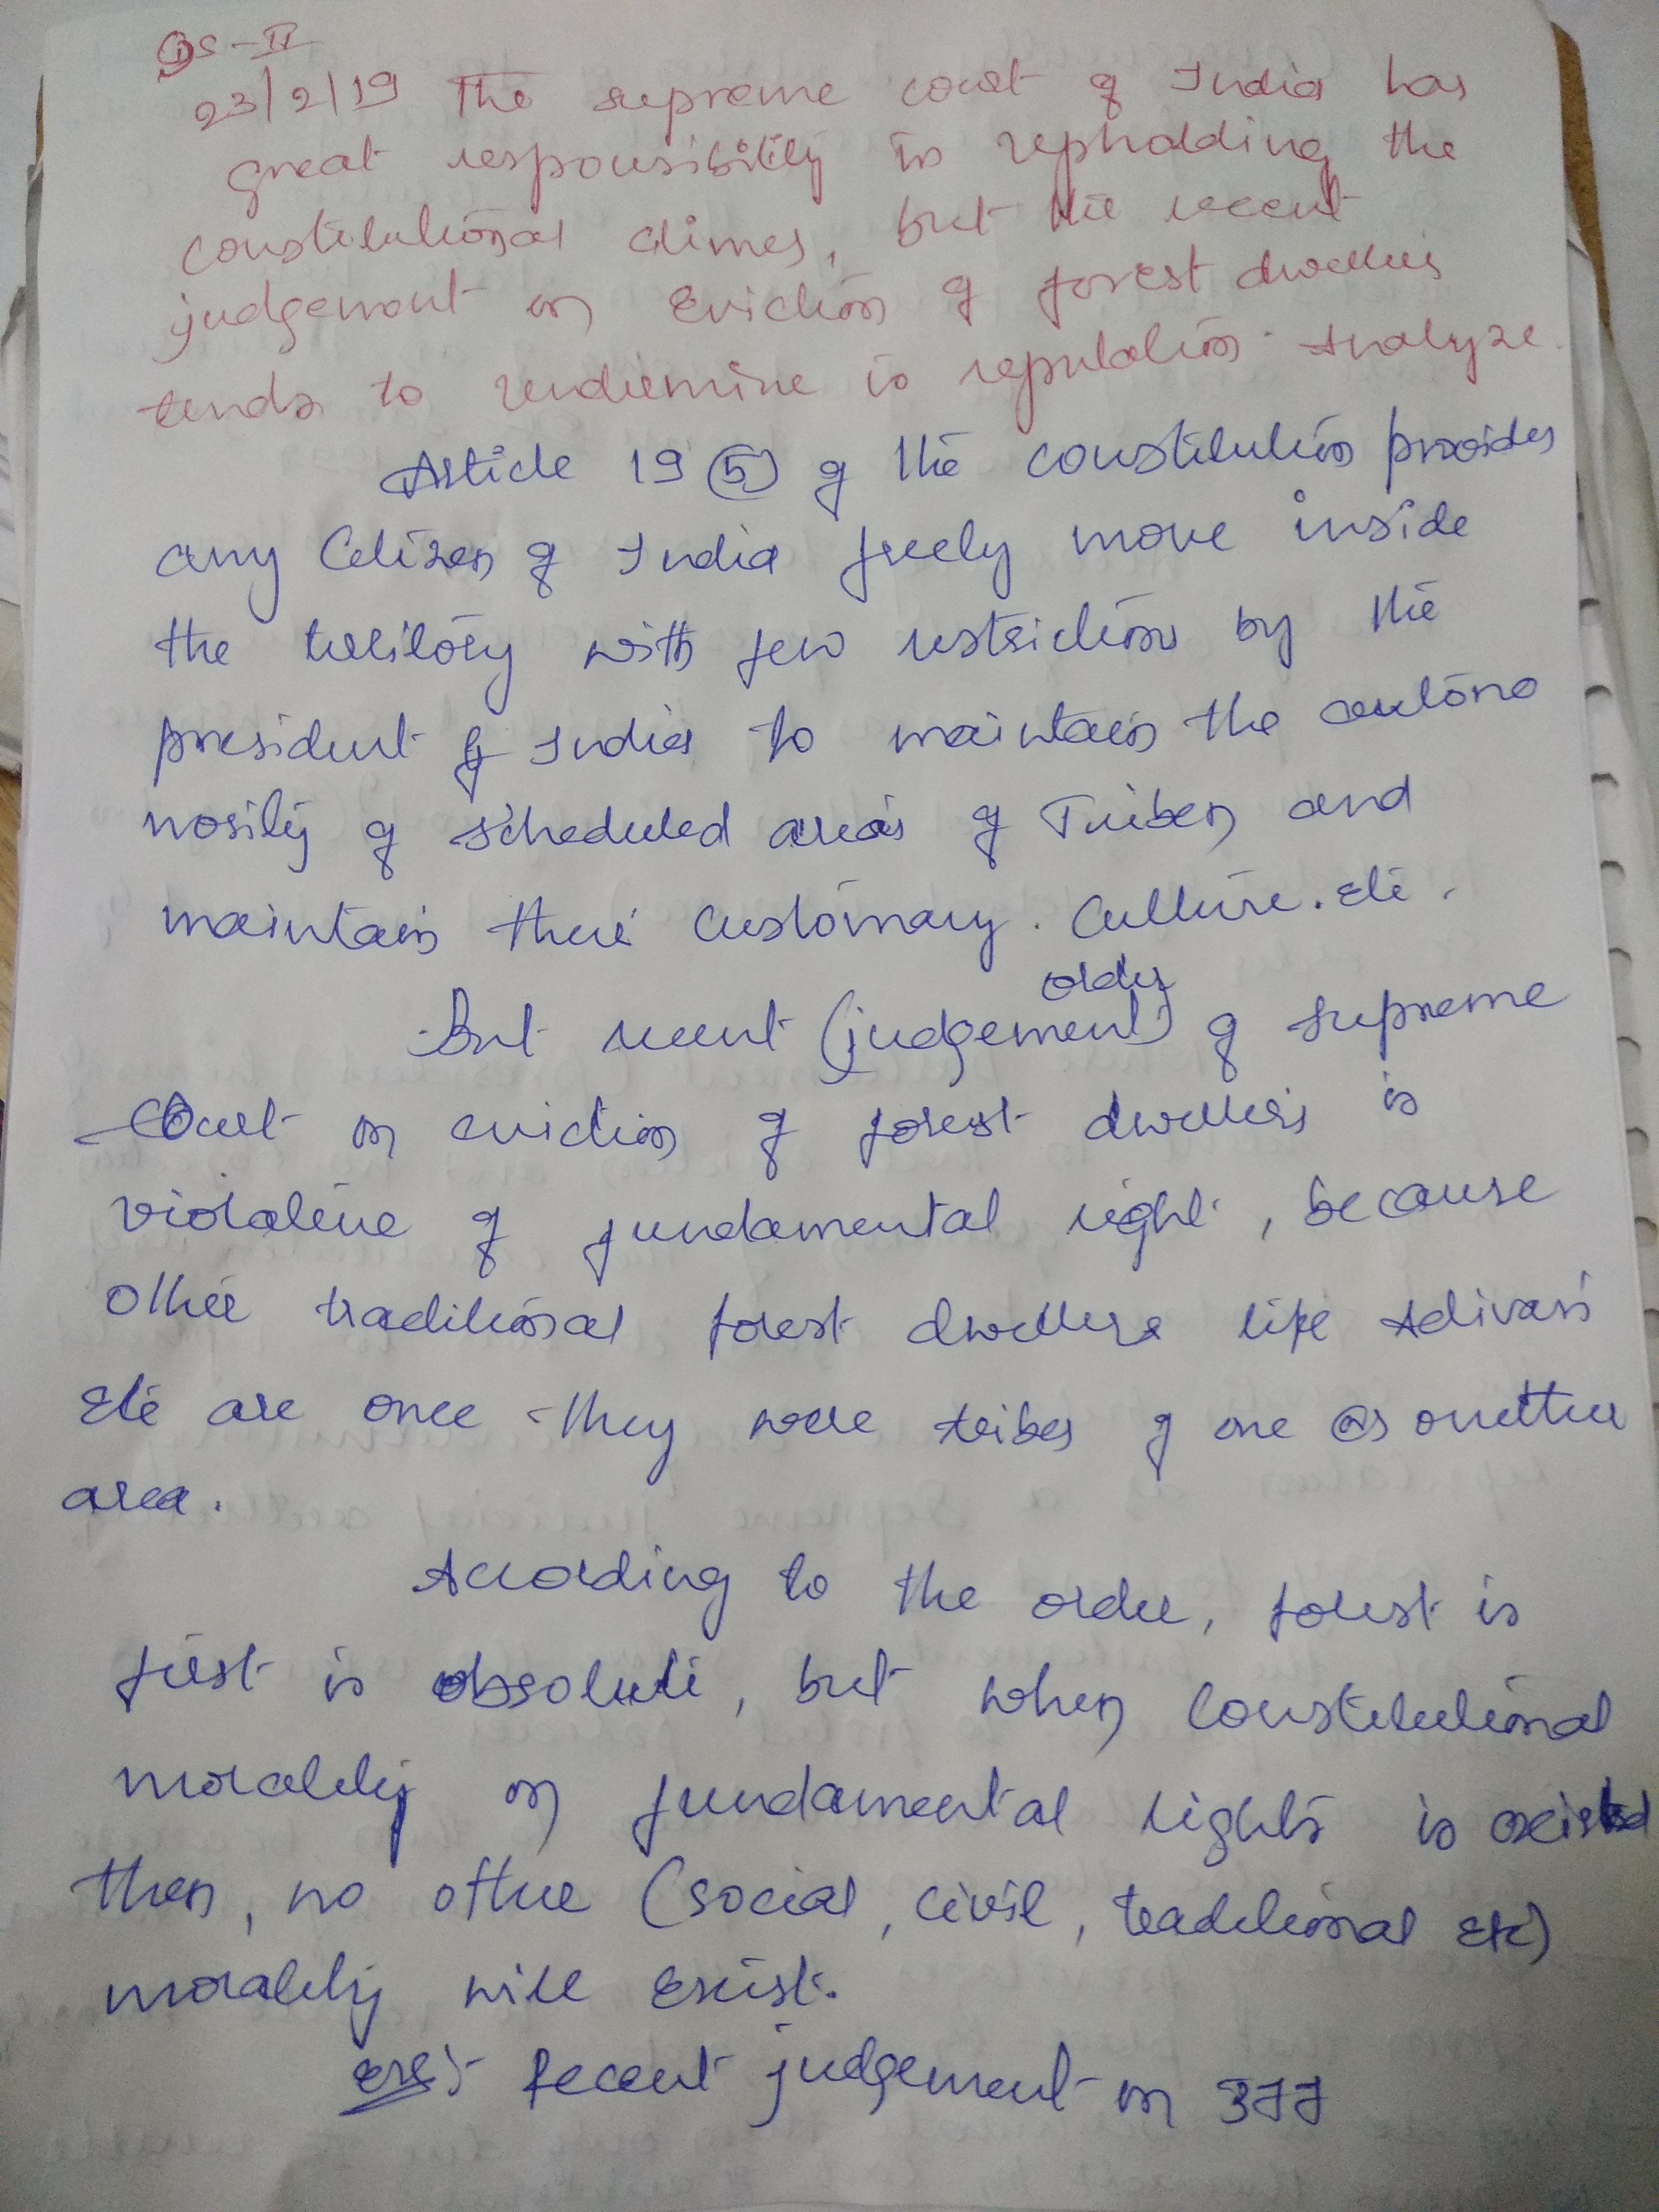 GS-II
23/2/19 The supreme court of India has
great responsibility in upholdding the
constitutional climes, but the recent
judgement on Eviction of forest dwellers
tends to undermine is reputation. Analyze.
Article 19 (5) of the constitution provides
any Citizen of India freely move inside
the territory with few restriction by the
president of India to maintain the autono
nosity of scheduled areas of Triben and
maintain there customary. Culture. etc.
order
But recent (judgement) of supreme
Court on eviction of forest dwellers is
violative of fundamental right, because
other traditional forest dwellers like Adivasi
etc are once they were tribes of one or onether
area.
According to the order, forest is
first is obsolute, but when constitutional
morality on fundamental rights is existed
then, no other (social, civil, traditional etc)
morality will exist.
ex:- Recent judgement on 377